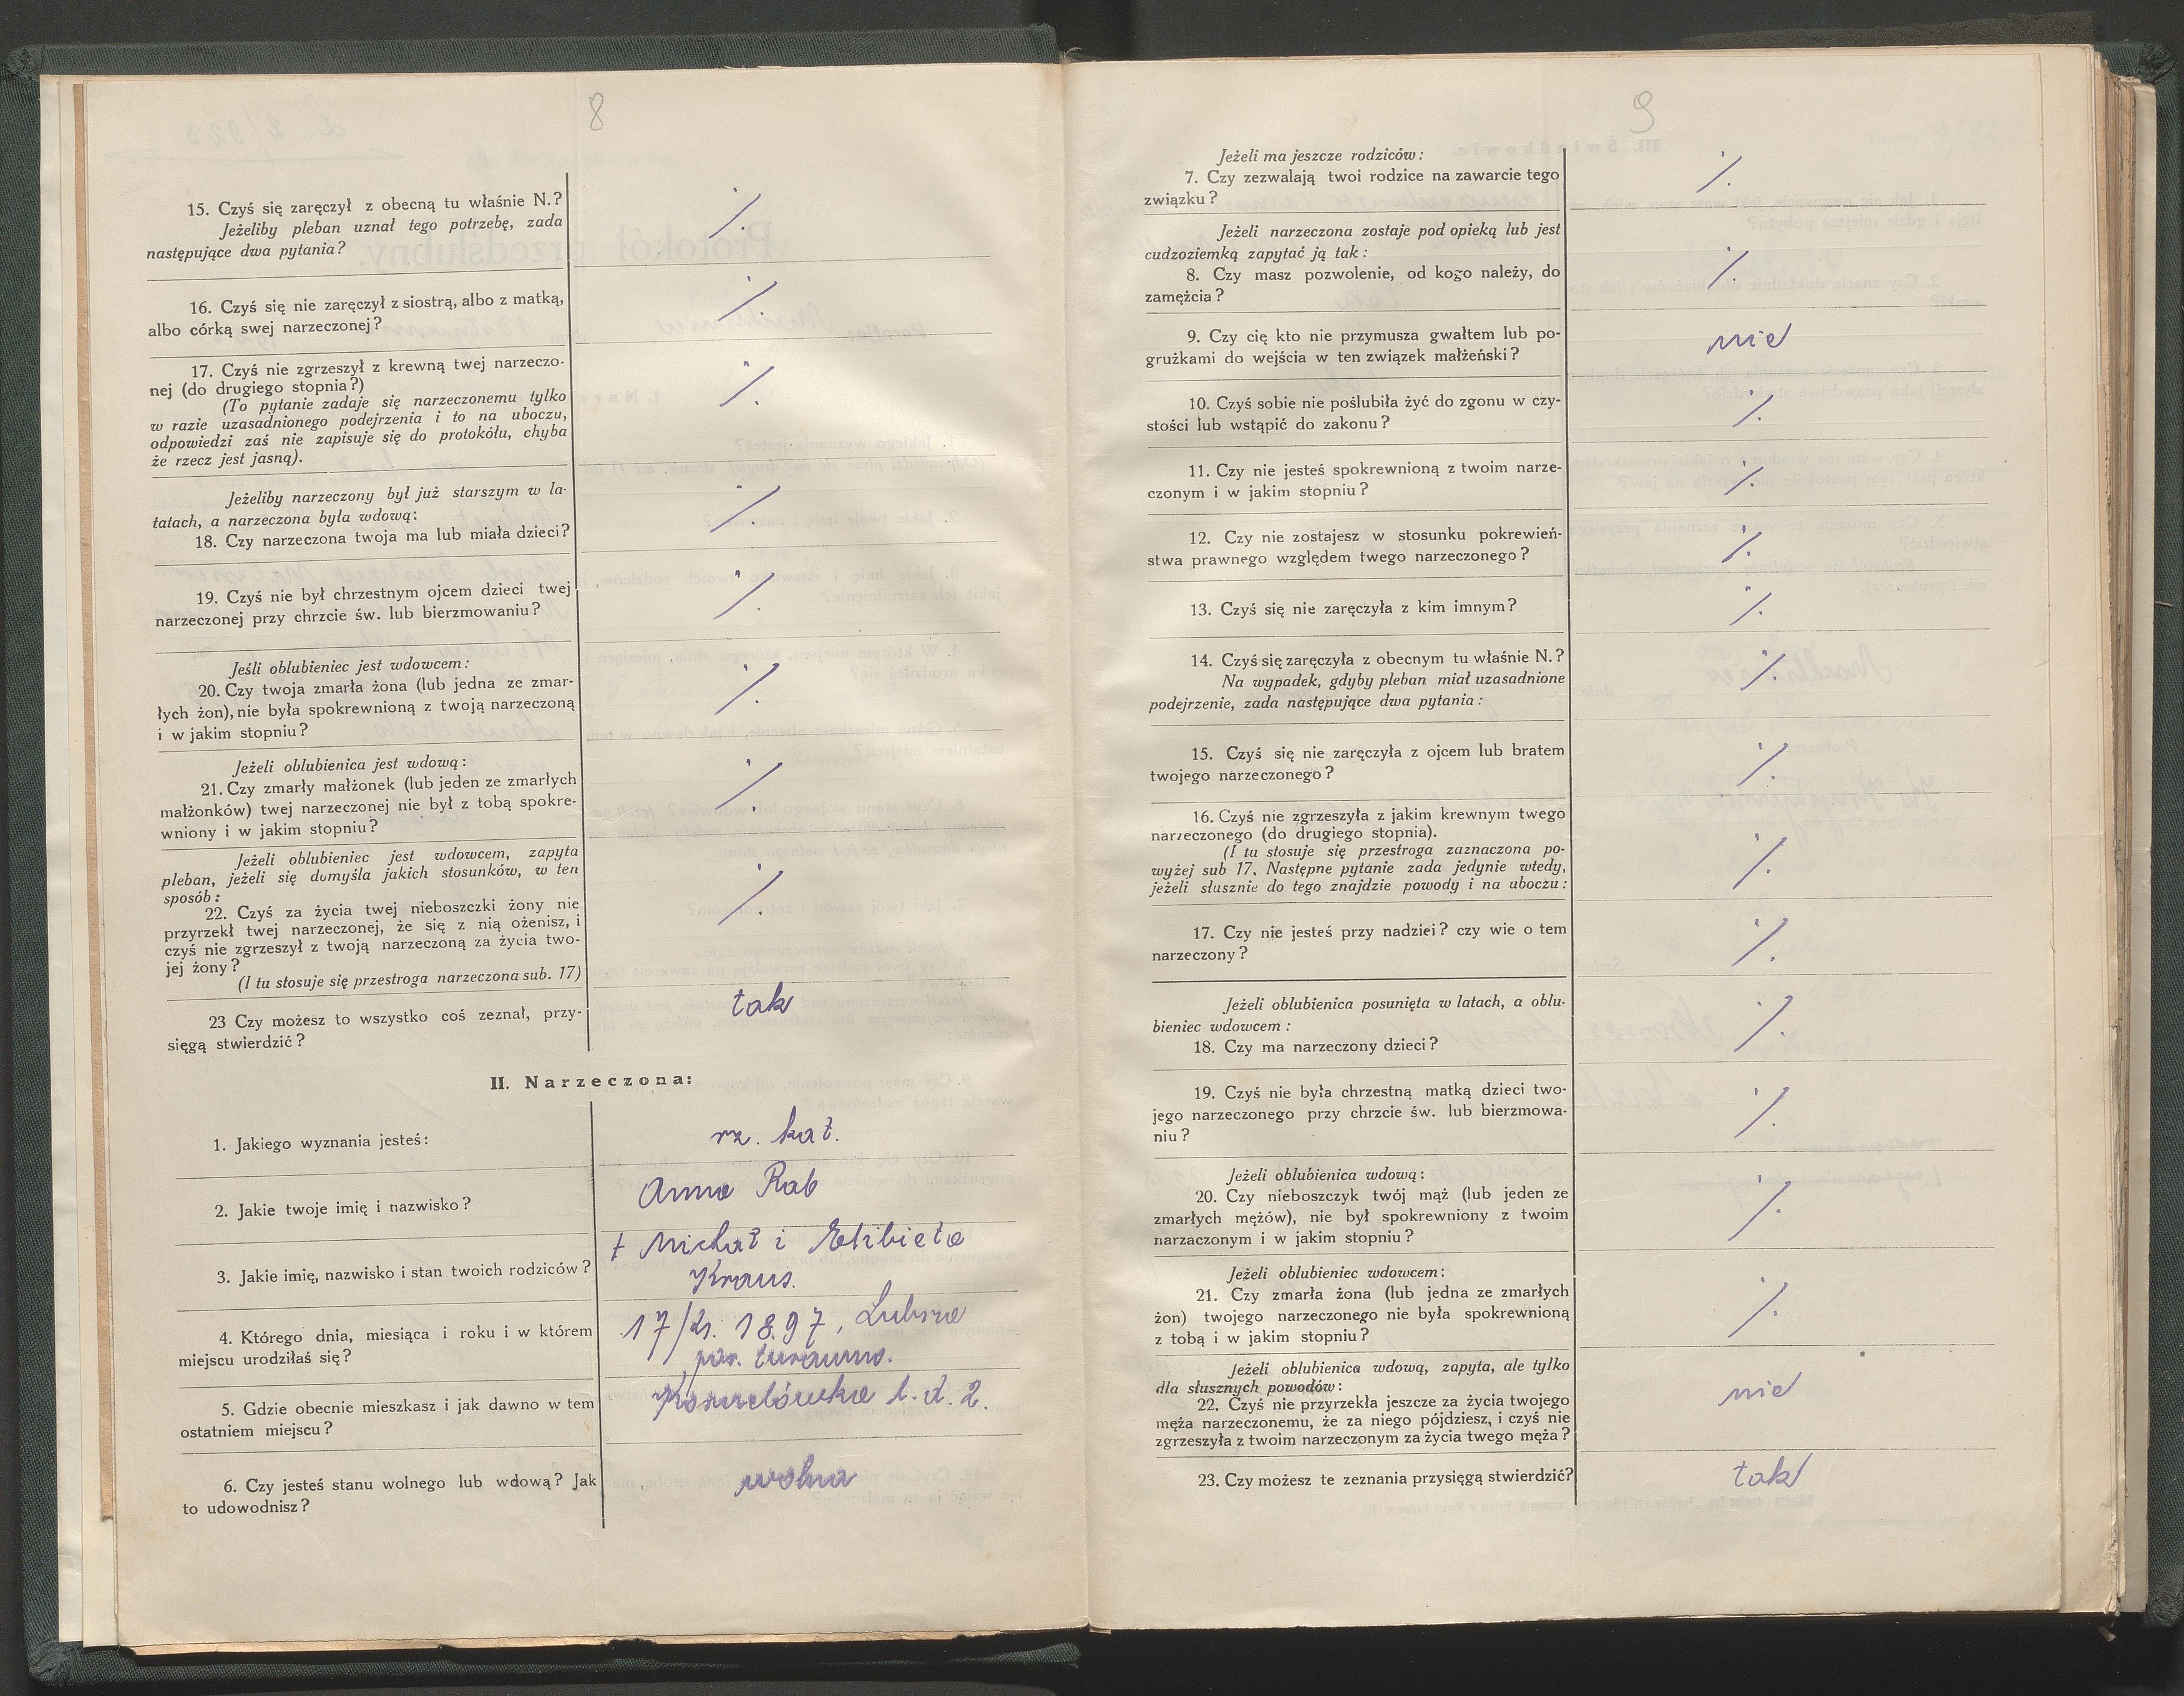 8
15. Czyś się zaręczył z obecną tu właśnie N.?
Jeżeliby pleban uznał tego potrzebę, zada
następujące dwa pytania?
%
16. Czyś się nie zaręczył z siostrą, albo z matką,
albo córką swej narzeczonej?
%
17. Czyś nie zgrzeszył z krewną twej narzeczo-
nej (do drugiego stopnia?)
(To pytanie zadaje się narzeczonemu tylko
w razie uzasadnionego podejrzenia i to na uboczu,
odpowiedzi zaś nie zapisuje się do protokółu, chyba
że rzecz jest jasną).
%
Jeżeliby narzeczony był już starszym w la-
tatach, a narzeczona była wdową:
18. Czy narzeczona twoja ma lub miała dzieci?
%
19. Czyś nie był chrzestnym ojcem dzieci twej
narzeczonej przy chrzcie św. lub bierzmowaniu?
%
Jeśli oblubieniec jest wdowcem:
20. Czy twoja zmarła żona (lub jedna ze zmar-
łych żon), nie była spokrewnioną z twoją narzeczoną
i w jakim stopniu?
%
Jeżeli oblubienica jest wdową:
21. Czy zmarły małżonek (lub jeden ze zmarłych
małżonków) twej narzeczonej nie był z tobą spokre-
wniony i w jakim stopniu?
%
Jeżeli oblubieniec jest wdowcem, zapyta
pleban, jeżeli się domyśla jakich stosunków, w ten
sposób:
22. Czyś za życia twej nieboszczki żony nie
przyrzekł twej narzeczonej, że się z nią ożenisz, i
czyś nie zgrzeszył z twoją narzeczoną za życia two-
jej żony?
(I tu stosuje się przestroga narzeczona sub. 17)
%
23 Czy możesz to wszystko coś zeznał, przy-
sięgą stwierdzić?
tak
II. Narzeczona:
1. Jakiego wyznania jesteś:
rz. kat.
2. Jakie twoje imię i nazwisko?
Anna Rab
3. Jakie imię, nazwisko i stan twoich rodziców?
† Michał i Elżbieta
Kraus.
4. Którego dnia, miesiąca i roku i w którem
miejscu urodziłaś się?
1897,
par.
5. Gdzie obecnie mieszkasz i jak dawno w tem
ostatniem miejscu?
l. d. 2.
6. Czy jesteś stanu wolnego lub wdową? Jak
to udowodnisz?
wolna
9
Jeżeli ma jeszcze rodziców:
7. Czy zezwalają twoi rodzice na zawarcie tego
związku?
%
Jeżeli narzeczona zostaje pod opieką lub jest
cudzoziemką zapytać ją tak:
8. Czy masz pozwolenie, od kogo należy, do
zamężcia?
%
9. Czy cię kto nie przymusza gwałtem lub po-
grużkami do wejścia w ten związek małżeński?
nie
10. Czyś sobie nie poślubiła żyć do zgonu w czy-
stości lub wstąpić do zakonu?
%
11. Czy nie jesteś spokrewnioną z twoim narze-
czonym i w jakim stopniu?
%
12. Czy nie zostajesz w stosunku pokrewień-
stwa prawnego względem twego narzeczonego?
%
13. Czyś się nie zaręczyła z kim imnym?
%
14. Czyś się zaręczyła z obecnym tu właśnie N.?
Na wypadek, gdyby pleban miał uzasadnione
podejrzenie, zada następujące dwa pytania:
%
15. Czyś się nie zaręczyła z ojcem lub bratem
twojego narzeczonego?
%
16. Czyś nie zgrzeszyła z jakim krewnym twego
narzeczonego (do drugiego stopnia).
(I tu stosuje się przestroga zaznaczona po-
wyżej sub 17. Następne pytanie zada jedynie wtedy,
jeżeli słusznie do tego znajdzie powody i na uboczu:
%
17. Czy nie jesteś przy nadziei? czy wie o tem
narzeczony?
%
Jeżeli oblubienica posunięta w latach, a oblu-
bieniec wdowcem:
18. Czy ma narzeczony dzieci?
%
19. Czyś nie była chrzestną matką dzieci two-
jego narzeczonego przy chrzcie św. lub bierzmowa-
niu?
%
Jeżeli oblubienica wdową:
20. Czy nieboszczyk twój mąż (lub jeden ze
zmarłych mężów), nie był spokrewniony z twoim
narzaczonym i w jakim stopniu?
%
Jeżeli oblubieniec wdowcem:
21. Czy zmarła żona (lub jedna ze zmarłych
żon) twojego narzeczonego nie była spokrewnioną
z tobą i w jakim stopniu?
%
Jeżeli oblubienica wdową, zapyta, ale tylko
dla słusznych powodów:
22. Czyś nie przyrzekła jeszcze za życia twojego
męża narzeczonemu, że za niego pójdziesz, i czyś nie
zgrzeszyła z twoim narzeczonym za życia twego męża?
nie
23. Czy możesz te zeznania przysięgą stwierdzić?
tak